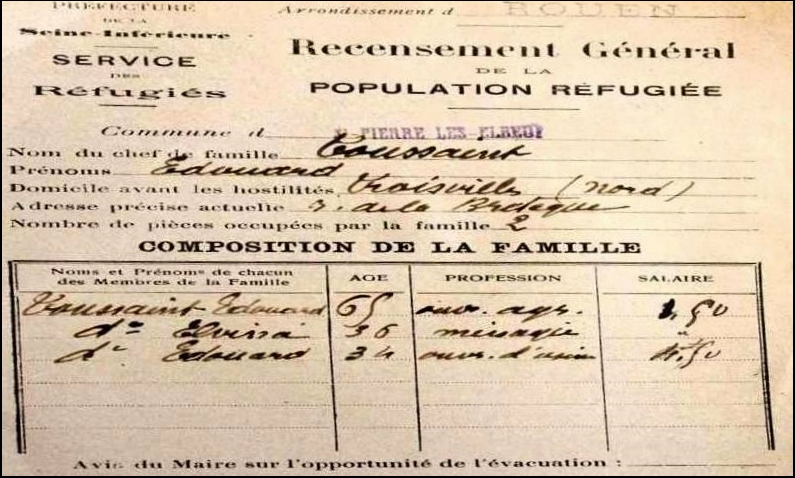 PRÉFECTURE
DE LA
Seine-Inférieure
SERVICE
DES
Réfugiés
Arrondissement d ROUEN
Recensement Général
DE LA
POPULATION RÉFUGIÉE
Commune d St PIERRE LES ELBEUF
Nom du chef de famille Toussaint
Prénoms Edouard
Domicile avant les hostilités Troisvilles (Nord)
Adresse précise actuelle r. de la Bretèque
Nombre de pièces occupées par la famille 2
COMPOSITION DE LA FAMILLE
Noms et Prénoms de chacun des Membres de la Famille AGE PROFESSION SALAIRE
Toussaint Edouard 65 ouv. agr. 50
do 36 ménagère "
do Edouard 34 ouv. d'usine 4.50
Avis du Maire sur l'opportunité de l'évacuation :